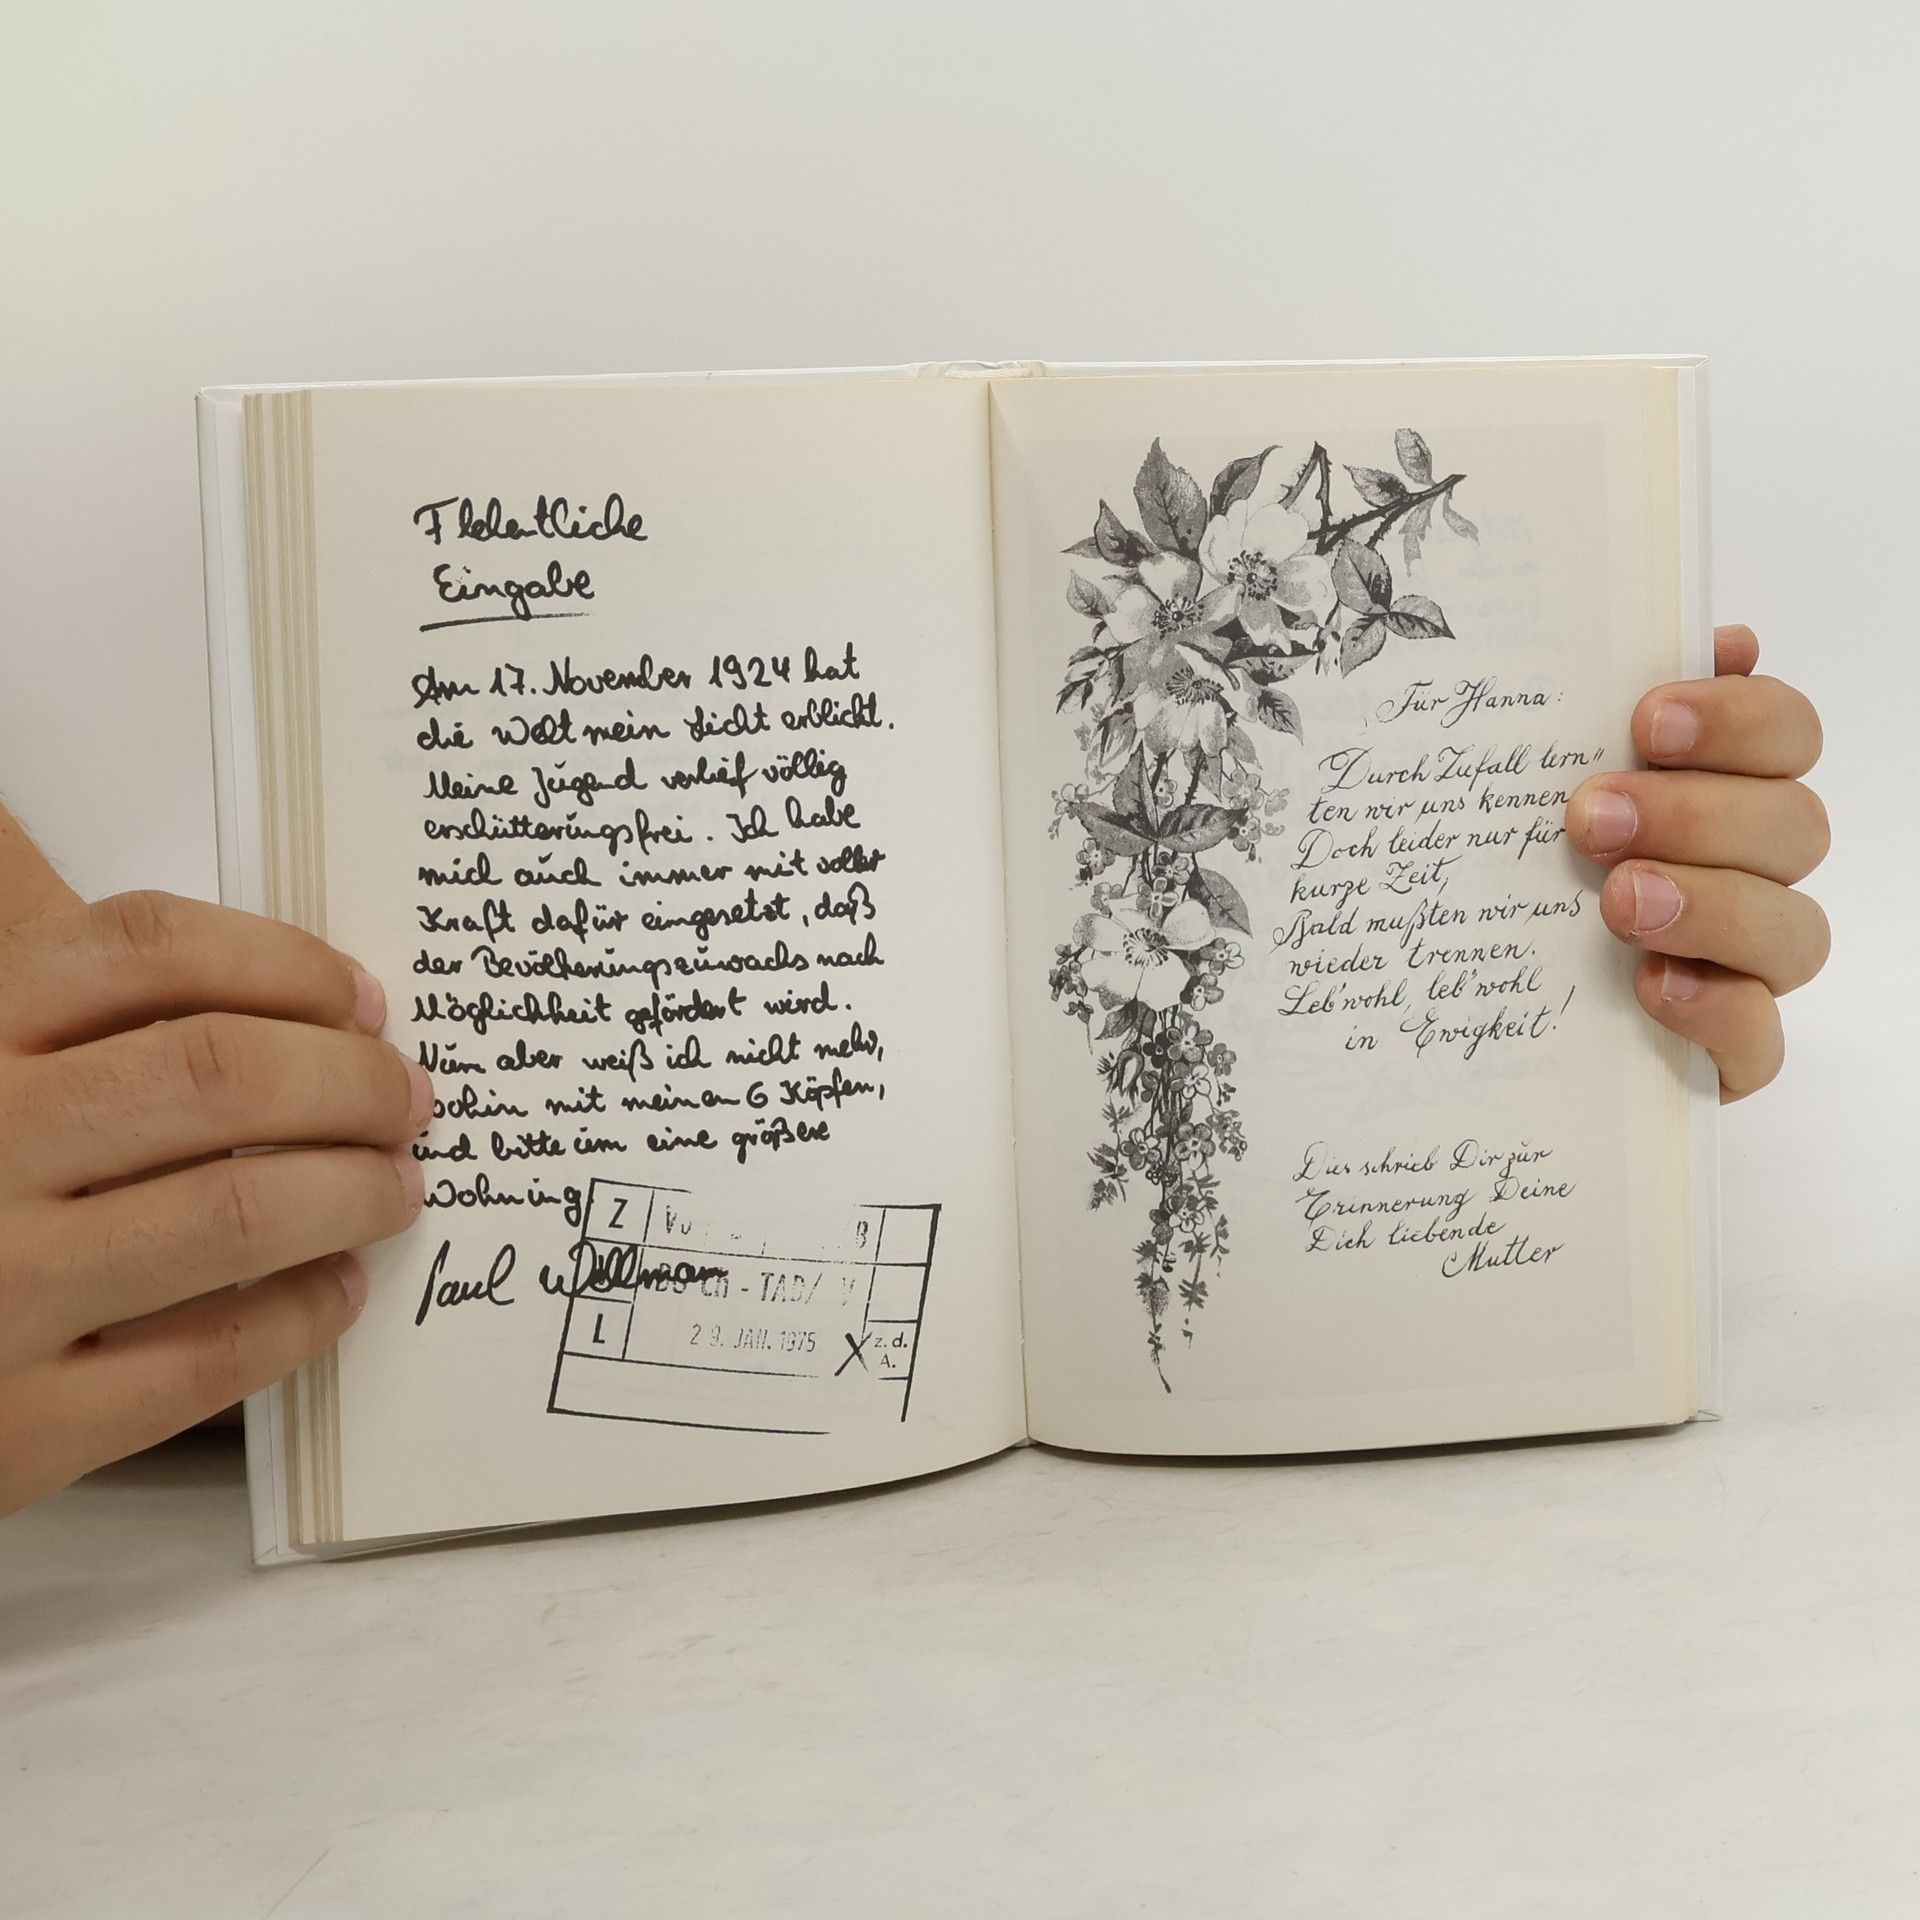 Flehentliche
Eingabe
Am 17. November 1924 hat
die Welt mein Licht erblickt.
Meine Jugend verlief völlig
erschütterungsfrei. Ich habe
mich auch immer mit voller
Kraft dafür eingesetzt, daß
der Bevölkerungszuwachs nach
Möglichkeit gefördert wird.
Nun aber weiß ich nicht mehr,
wohin mit meinen 6 Köpfen,
und bitte um eine größere
Wohnung
Paul Wellman
Z
B
ch - TAD/ V
L
29. JAN. 1975
X z.d.
A.
Für Hanna:
Durch Zufall lern"
ten wir uns kennen
Doch leider nur für
kurze Zeit,
Bald mußten wir uns
wieder trennen.
Leb' wohl, leb' wohl
in Ewigkeit!
Dies schrieb Dir zur
Erinnerung Deine
Dich liebende
Mutter